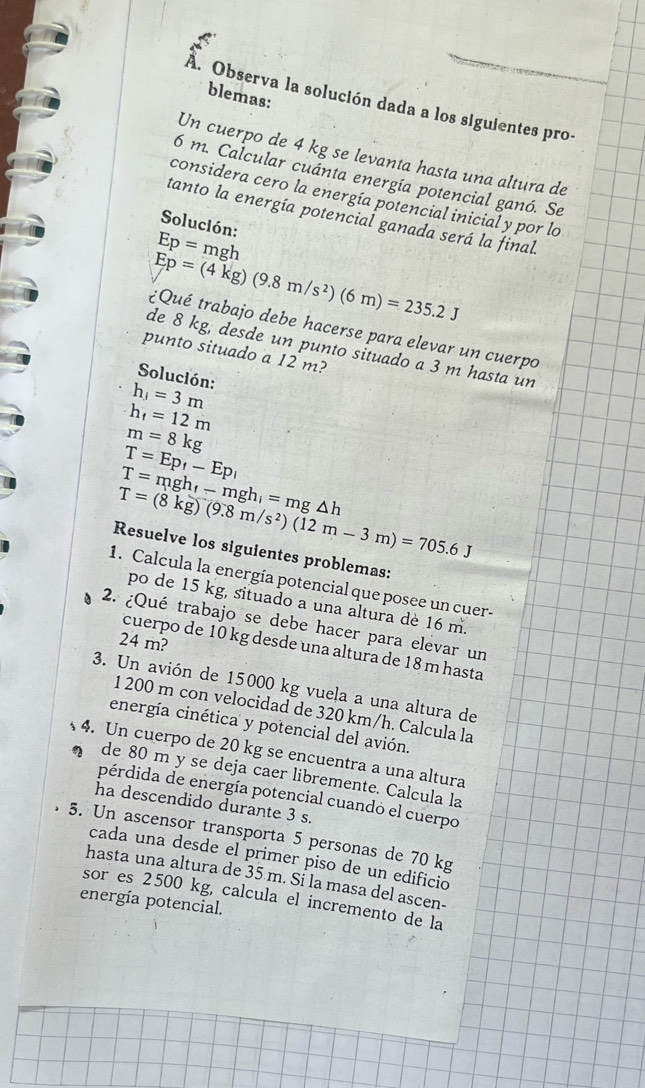 A. Observa la solución dada a los siguientes pro-
blemas:
Un cuerpo de 4 kg se levanta hasta una altura de
6 m. Calcular cuánta energía potencial ganó. Se
considera cero la energía potencial inicial y por lo
tanto la energía potencial ganada será la final.
Solución:
Ep = mgh
Ep = (4 kg) (9.8 m/s²) (6 m) = 235.2 J
¿Qué trabajo debe hacerse para elevar un cuerpo
de 8 kg, desde un punto situado a 3 m hasta un
punto situado a 12 m?
Solución:
hᵢ = 3 m
hf = 12 m
m = 8 kg
T = Epf − Epᵢ
T = mghf − mghᵢ = mg Δh
T = (8 kg) (9.8 m/s²) (12 m − 3 m) = 705.6 J
Resuelve los siguientes problemas:
1. Calcula la energía potencial que posee un cuer-
po de 15 kg, situado a una altura de 16 m.
2. ¿Qué trabajo se debe hacer para elevar un
cuerpo de 10 kg desde una altura de 18 m hasta
24 m?
3. Un avión de 15000 kg vuela a una altura de
1200 m con velocidad de 320 km/h. Calcula la
energía cinética y potencial del avión.
4. Un cuerpo de 20 kg se encuentra a una altura
de 80 m y se deja caer libremente. Calcula la
pérdida de energía potencial cuando el cuerpo
ha descendido durante 3 s.
5. Un ascensor transporta 5 personas de 70 kg
cada una desde el primer piso de un edificio
hasta una altura de 35 m. Si la masa del ascen-
sor es 2500 kg, calcula el incremento de la
energía potencial.